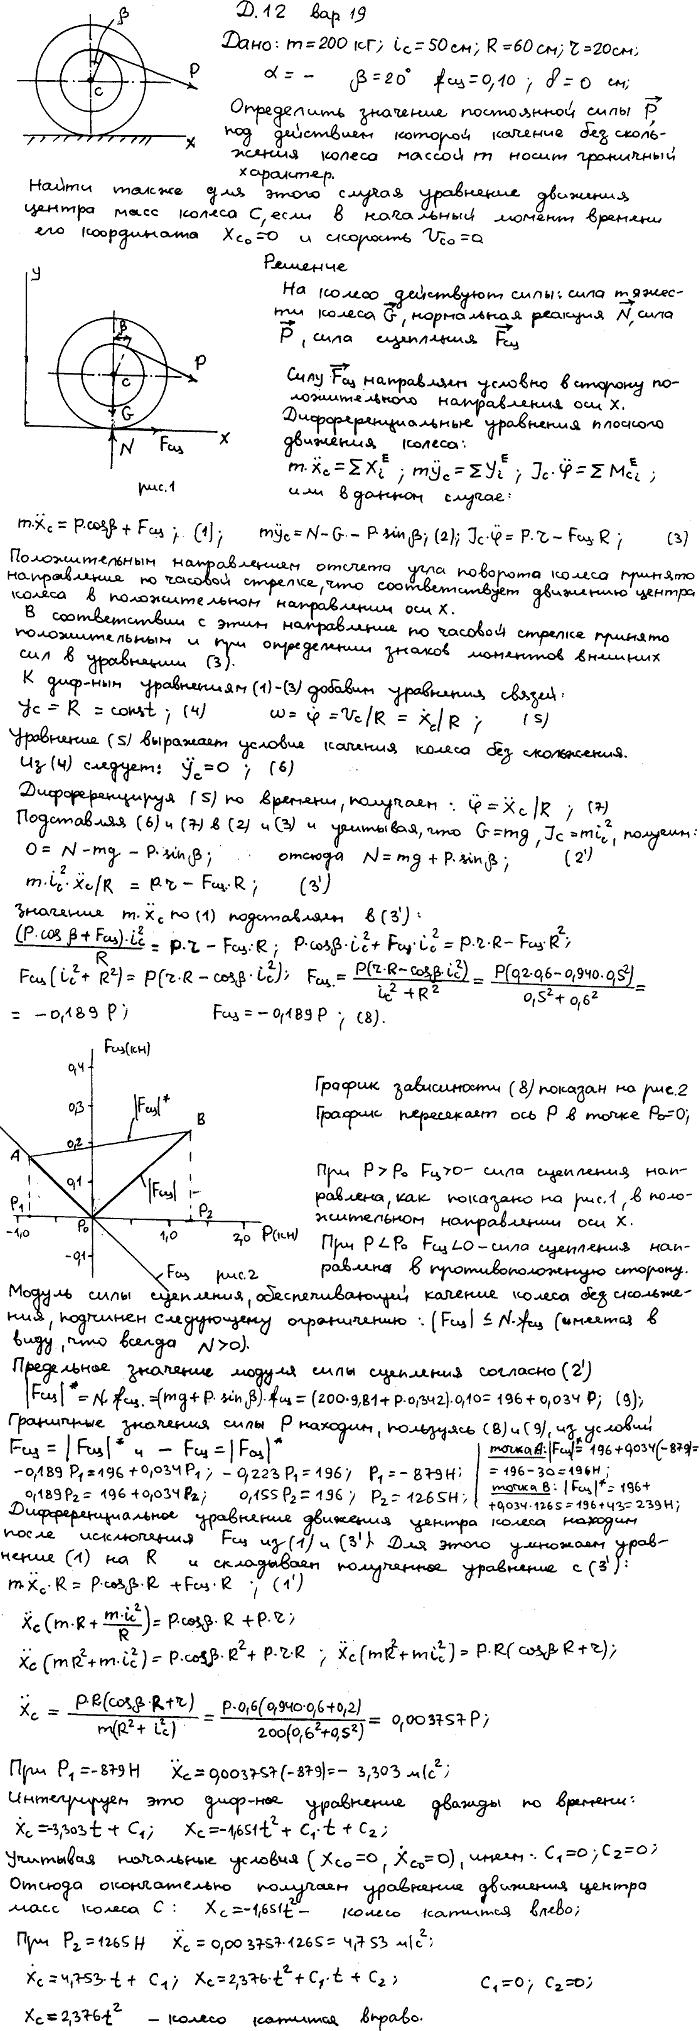 Д.12 вар 19
β
P
C
X
Дано: m=200 кг; ic=50см; R=60см; r=20см;
α = – β=20° fсц=0,10; δ=0 см;
Определить значение постоянной силы P,
под действием которой качение без сколь-
жения колеса массой m носит граничный
характер.
Найти также для этого случая уравнение движения
центра масс колеса C, если в начальный момент времени
его координата Xco=0 и скорость Vco=0
Решение
y
β
P
C
G
N
Fсц
X
рис.1
На колесо действуют силы: сила тяжес-
ти колеса G, нормальная реакция N, сила
P, сила сцепления Fсц
Силу Fсц направляем условно в сторону по-
ложительного направления оси X.
Дифференциальные уравнения плоского
движения колеса:
m·ẍc = ΣXiᴱ; mÿc = ΣYiᴱ; Jc·φ̈ = ΣMciᴱ;
или в данном случае:
m·ẍc = P·cosβ + Fсц; (1); mÿc = N-G-P·sinβ; (2); Jc·φ̈ = P·r - Fсц·R; (3)
Положительным направлением отсчета угла поворота колеса принято
направление по часовой стрелке, что соответствует движению центра
колеса в положительном направлении оси X.
В соответствии с этим направление по часовой стрелке принято
положительным и при определении знаков моментов внешних
сил в уравнении (3).
К диф-ным уравнениям (1)-(3) добавим уравнения связей:
yc = R = const; (4) ω = φ̇ = Vc/R = ẋc/R; (5)
Уравнение (5) выражает условие качения колеса без скольжения.
Из (4) следует: ÿc=0; (6)
Дифференцируя (5) по времени, получаем: φ̈ = ẍc/R; (7)
Подставляя (6) и (7) в (2) и (3) и учитывая, что G=mg, Jc=mic², получим:
0 = N-mg-P·sinβ; отсюда N=mg+P·sinβ; (2')
m·ic²·ẍc/R = P·r - Fсц·R; (3')
Значение m·ẍc по (1) подставляем в (3'):
(P·cosβ+Fсц)·ic²/R = P·r-Fсц·R; P·cosβ·ic²+Fсц·ic² = P·r·R-Fсц·R²;
Fсц(ic²+R²)=P(r·R-cosβ·ic²); Fсц = P(r·R-cosβ·ic²)/(ic²+R²) = P(0,2·0,6-0,940·0,5²)/(0,5²+0,6²) =
= -0,189P; Fсц=-0,189P; (8).
Fсц(кн)
0,4
0,3
|Fсц|*
B
0,2
A
0,1
|Fсц|
P1
P0
P2
-1,0
1,0
2,0
P(кн)
-0,1
Fсц
рис.2
График зависимости (8) показан на рис.2
График пересекает ось P в точке P0=0;
При P>P0 Fсц>0- сила сцепления нап-
равлена, как показано на рис.1, в поло-
жительном направлении оси X.
При P<P0 Fсц<0-сила сцепления нап-
равлена в противоположную сторону.
Модуль силы сцепления, обеспечивающей качение колеса без скольже-
ния, подчинен следующему ограничению: |Fсц| ≤ N·fсц (имеется в
виду, что всегда N>0).
Предельное значение модуля силы сцепления согласно (2')
|Fсц|* = N·fсц=(mg+P·sinβ)·fсц = (200·9,81+P·0,342)·0,10=196+0,034P; (9);
Граничные значения силы P находим, пользуясь (8) и (9), из условий
Fсц = |Fсц|* и -Fсц=|Fсц|*
-0,189P1=196+0,034P1; -0,223P1=196; P1=-879Н;
0,189P2=196+0,034P2; 0,155P2=196; P2=1265Н;
точка A: |Fсц|*=196+0,034(-879)=
=196-30=196Н;
точка B: |Fсц|*=196+
+0,034·1265=196+43=239Н;
Дифференциальное уравнение движения центра колеса находим
после исключения Fсц из (1) и (3'). Для этого умножаем урав-
нение (1) на R и складываем полученное уравнение с (3'):
m·ẍc·R = P·cosβ·R+Fсц·R; (1')
ẍc(m·R+m·ic²/R)=P·cosβ·R+P·r;
ẍc(mR²+m·ic²)=P·cosβ·R²+P·r·R; ẍc(mR²+mic²)=P·R(cosβ·R+r);
ẍc = P·R(cosβ·R+r)/m(R²+ic²) = P·0,6(0,940·0,6+0,2)/200(0,6²+0,5²) = 0,003757P;
При P1=-879Н ẍc=0,003757(-879)=-3,303 м/с²;
Интегрируем это диф-ное уравнение дважды по времени:
ẋc=-3,303t+C1; Xc=-1,651t²+C1·t+C2;
Учитывая начальные условия (Xco=0, Ẋco=0), имеем: C1=0; C2=0;
Отсюда окончательно получаем уравнение движения центра
масс колеса C: Xc=-1,651t²- колесо катится влево;
При P2=1265Н ẍc=0,003757·1265=4,753 м/с²;
ẋc=4,753·t+C1; Xc=2,376·t²+C1·t+C2; C1=0; C2=0;
Xc=2,376t² - колесо катится вправо.